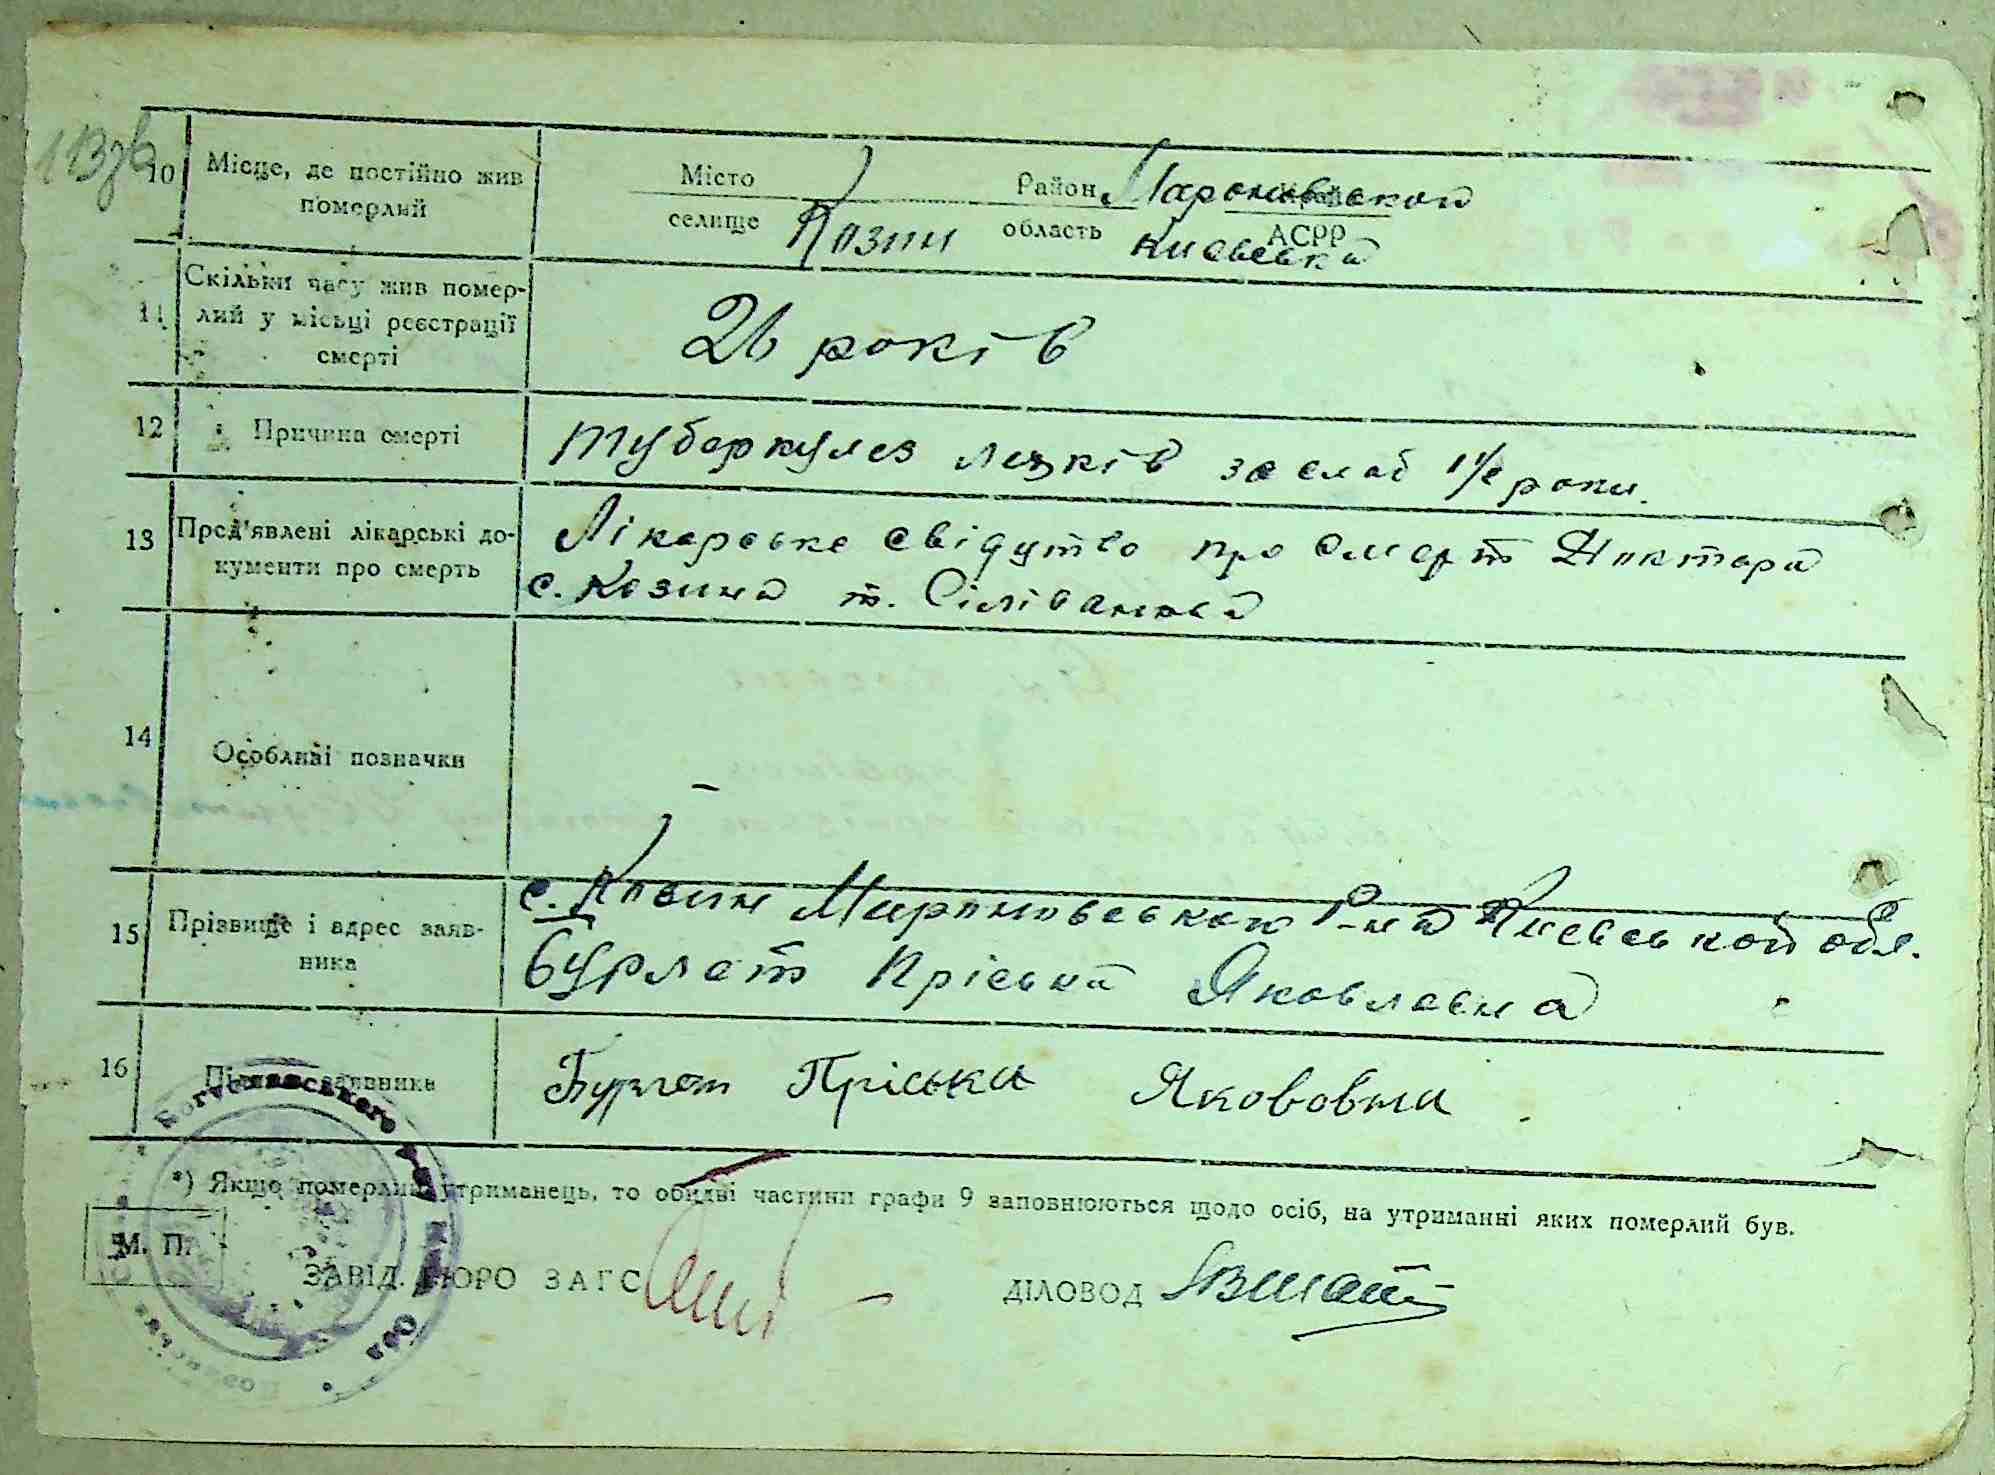 113зв
10 Місце, де постійно жив померлий
Місто селище Козин Район область Мароновской Киевська АСРР
11 Скільки часу жив помер-
лий у місьці реєстрації
смерті
26 років
12 Причина смерті
туберкулез легків заслаб 1½ роки.
13 Пред'явлені лікарські до-
кументи про смерть
Лікарське свідутво про смерт Доктора
с. Козина т. Сіліванова
14 Особливі позначки
–
15 Прізвище і адрес заяв-
ника
с. Козин Мироновського Р-на Киевськой обл.
Бурлат Пріська Яковлевна
16 Підпис заявника
Бурлат Пріська Якововна
*) Якщо померлий утриманець, то обидві частини графи 9 заповнюються щодо осіб, на утриманні яких померлий був.
М. П.
ЗАВІД. БЮРО ЗАГС
ДІЛОВОД
Богуславського